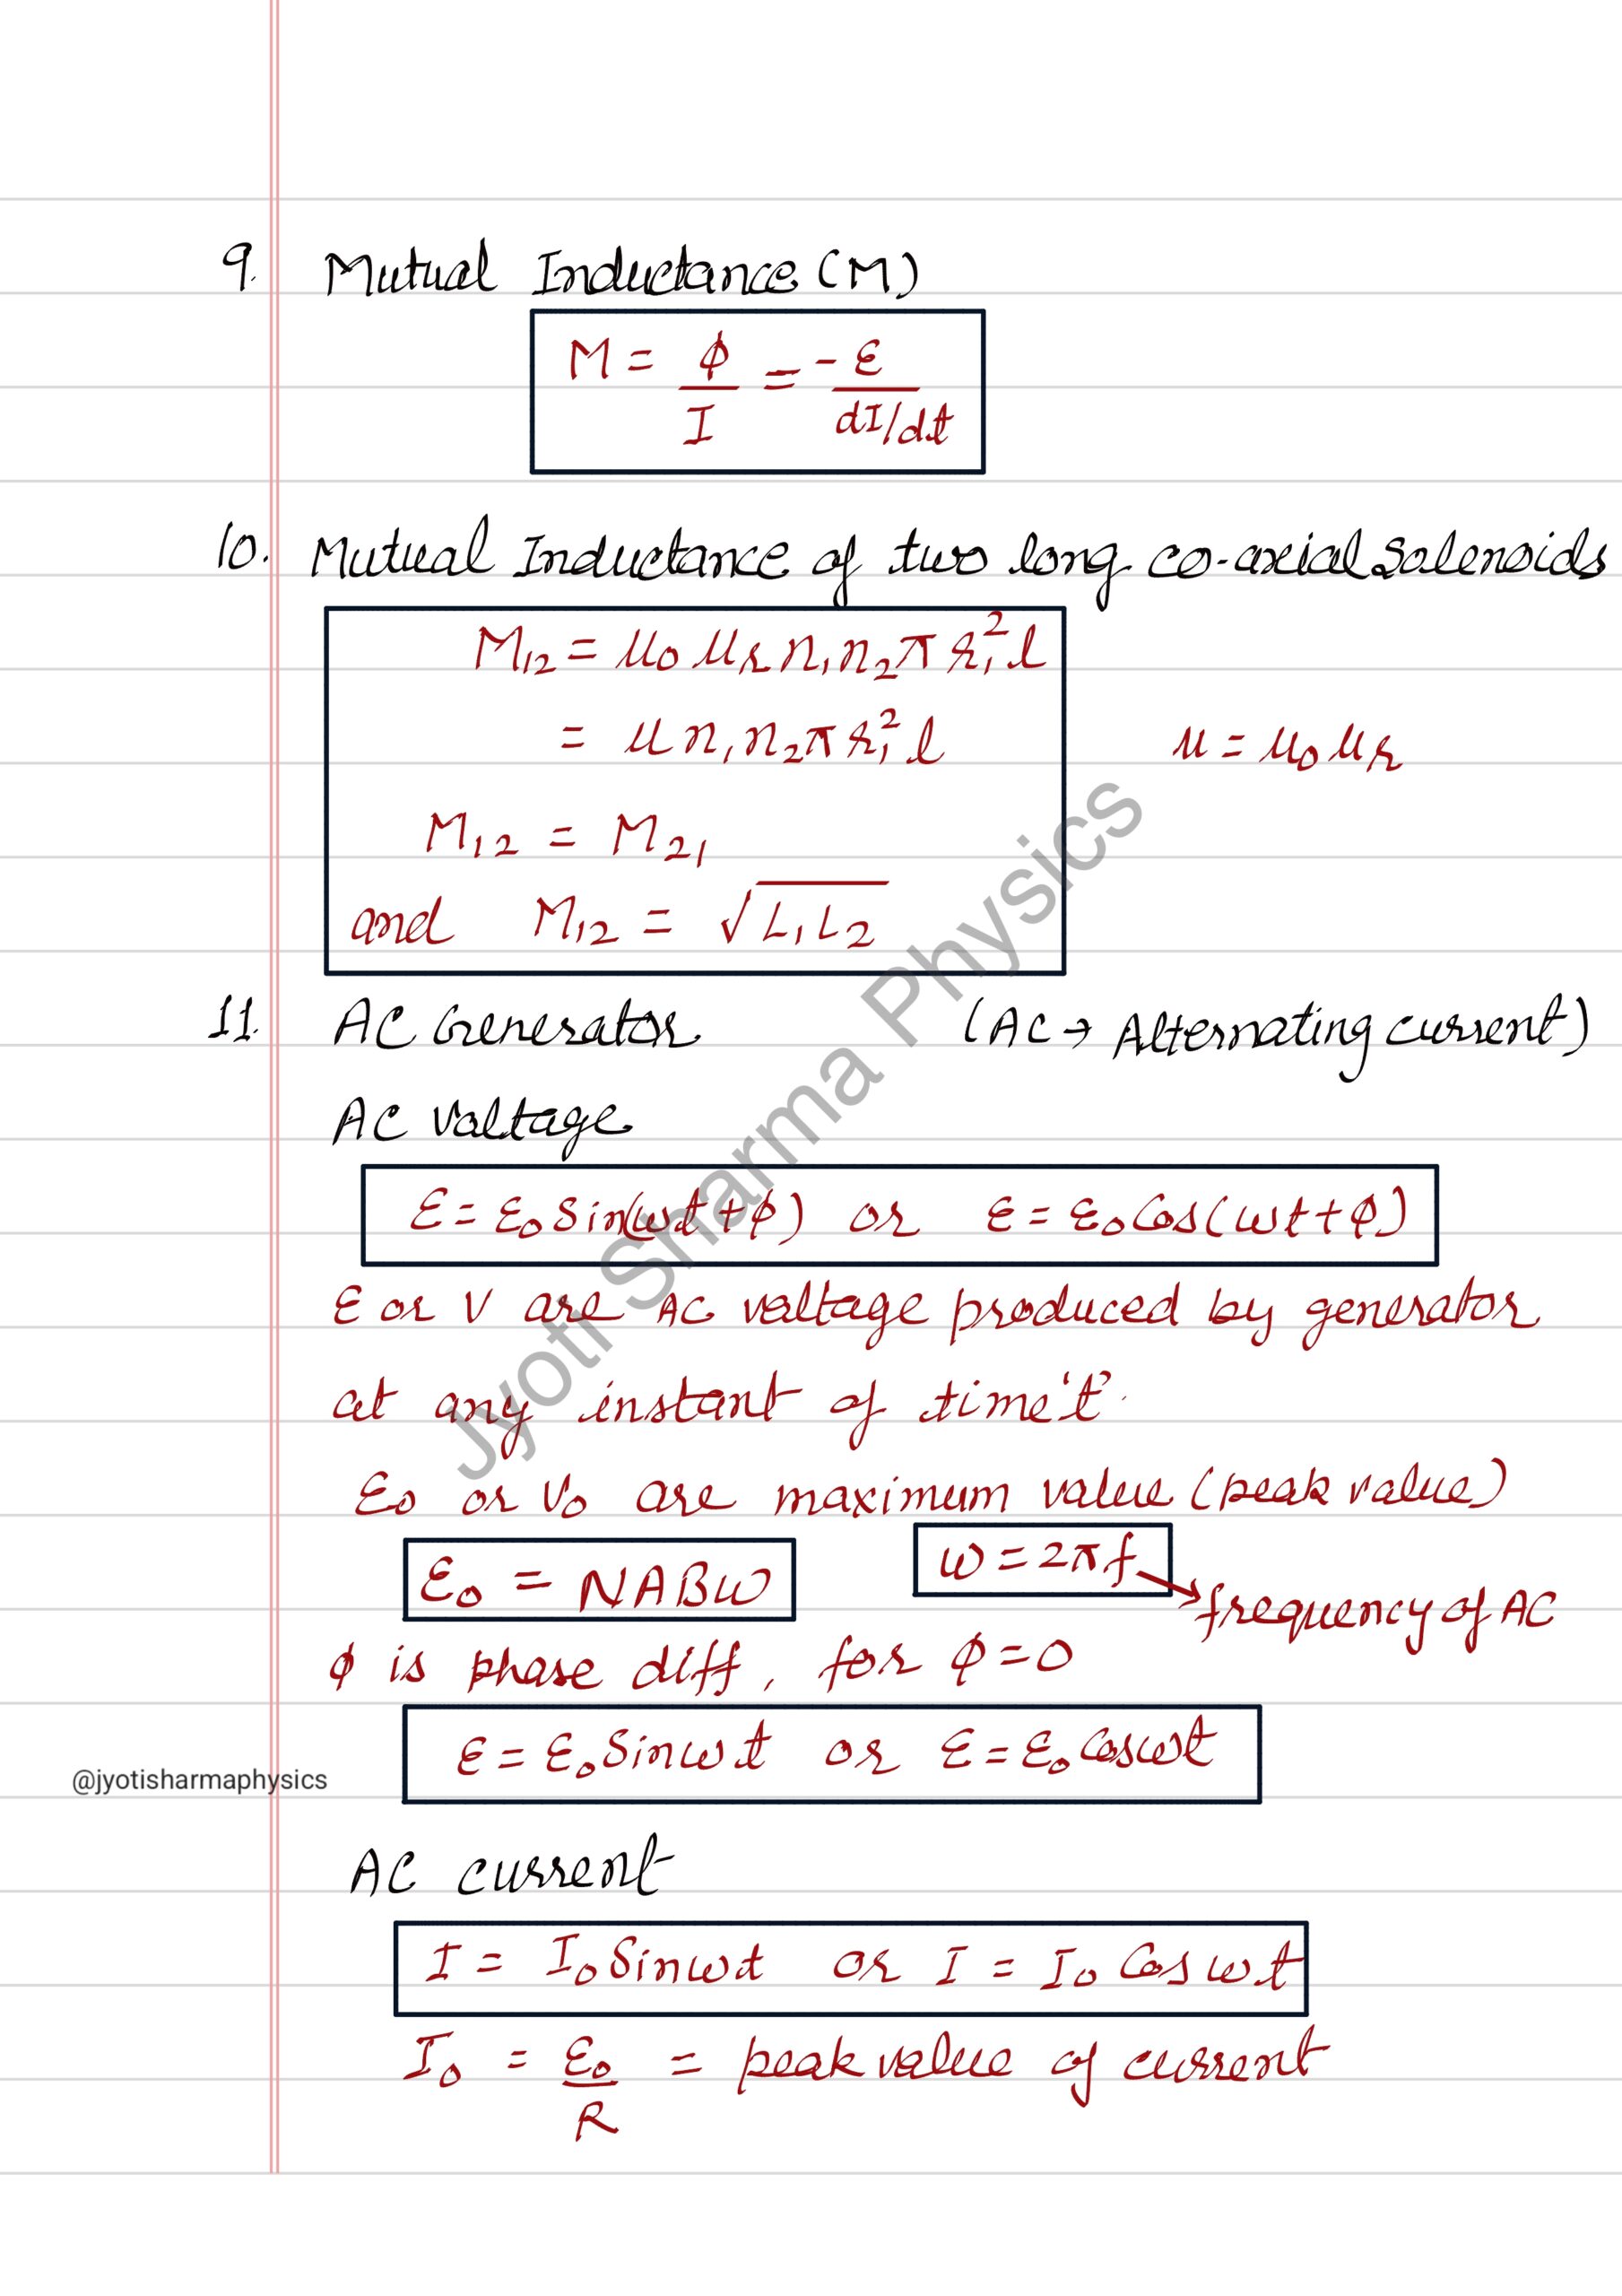 9. Mutual Inductance (M)
M = ϕ/I = -ε/dI/dt
10. Mutual Inductance of two long co-axial Solenoids
M₁₂ = μ₀ μᵣ n₁ n₂ π r₁² l
= μ n₁ n₂ π r₁² l    μ = μ₀ μᵣ
M₁₂ = M₂₁
and M₁₂ = √L₁L₂
11. AC Generator (AC → Alternating current)
AC Voltage
ε = ε₀ Sin(ωt + ϕ) or ε = ε₀ Cos(ωt + ϕ)
ε or V are AC voltage produced by generator
at any instant of time 't'.
ε₀ or V₀ are maximum value (peak value)
ε₀ = NABω    ω = 2πf → frequency of AC
ϕ is phase diff, for ϕ = 0
ε = ε₀ Sinωt or ε = ε₀ Cosωt
@jyotisharmaphysics
AC current
I = I₀ Sinωt or I = I₀ Cos ωt
I₀ = ε₀/R = peak value of current
Jyoti Sharma Physics